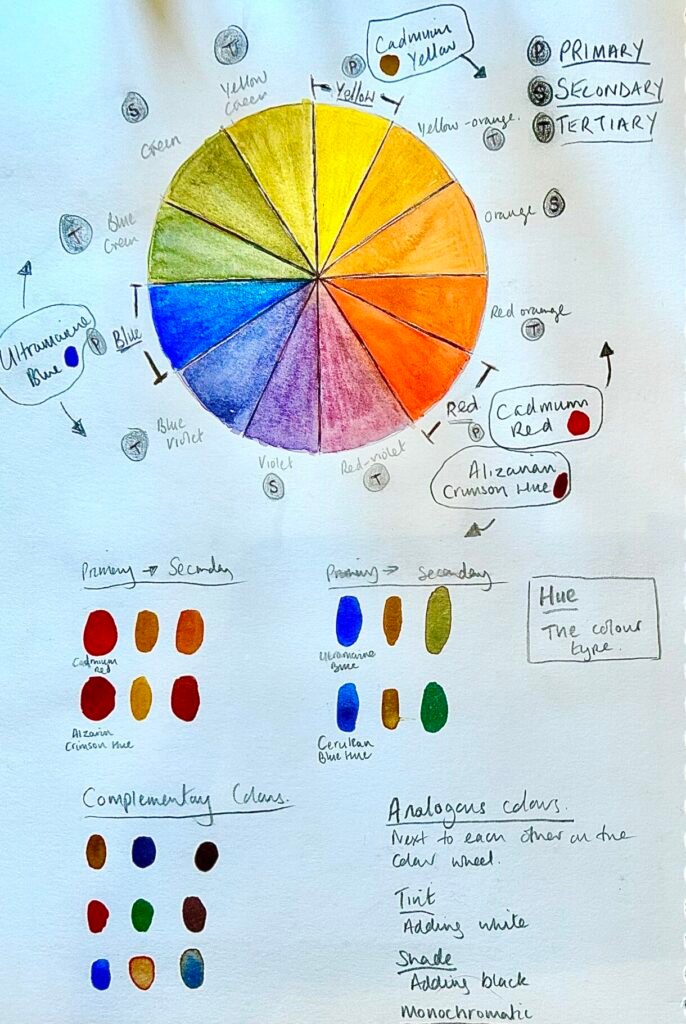 Cadmium
Yellow
P PRIMARY
S SECONDARY
T TERTIARY
T
P
Yellow
Green
Yellow
S
Green
Yellow-orange.
T
T
Blue
Green
orange S
Ultramarine
Blue
P
Blue
Red orange
T
Red
P
Cadmium
Red
T
Blue
Violet
Violet
S
Red-violet
T
Alizarian
Crimson Hue
Primary → Secondary
Primary → Secondary
Hue
The colour
type.
Cadmium
Red
Ultramarine
Blue
Alzarin
Crimson Hue
Cerulean
Blue Hue
Complementary Colours.
Analogous colours.
Next to each other on the
Colour wheel.
Tint
Adding white
Shade
Adding black
Monochromatic